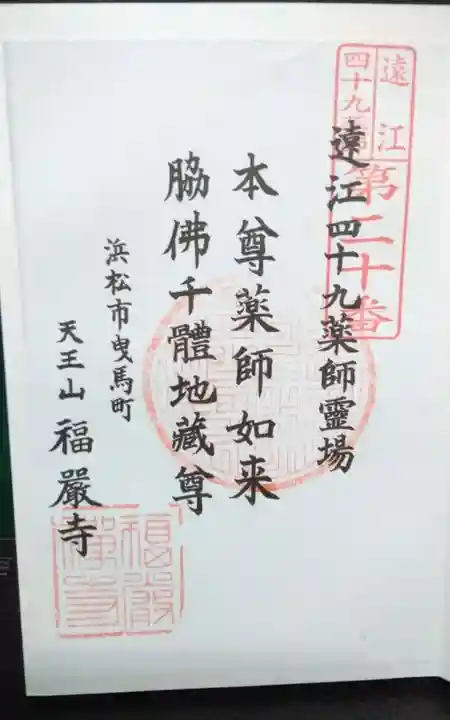 遠江
四十九薬師
第二十番
遠江四十九薬師靈場
本尊薬師如来
脇佛千體地藏尊
浜松市曳馬町
天王山福嚴寺
福嚴禪寺